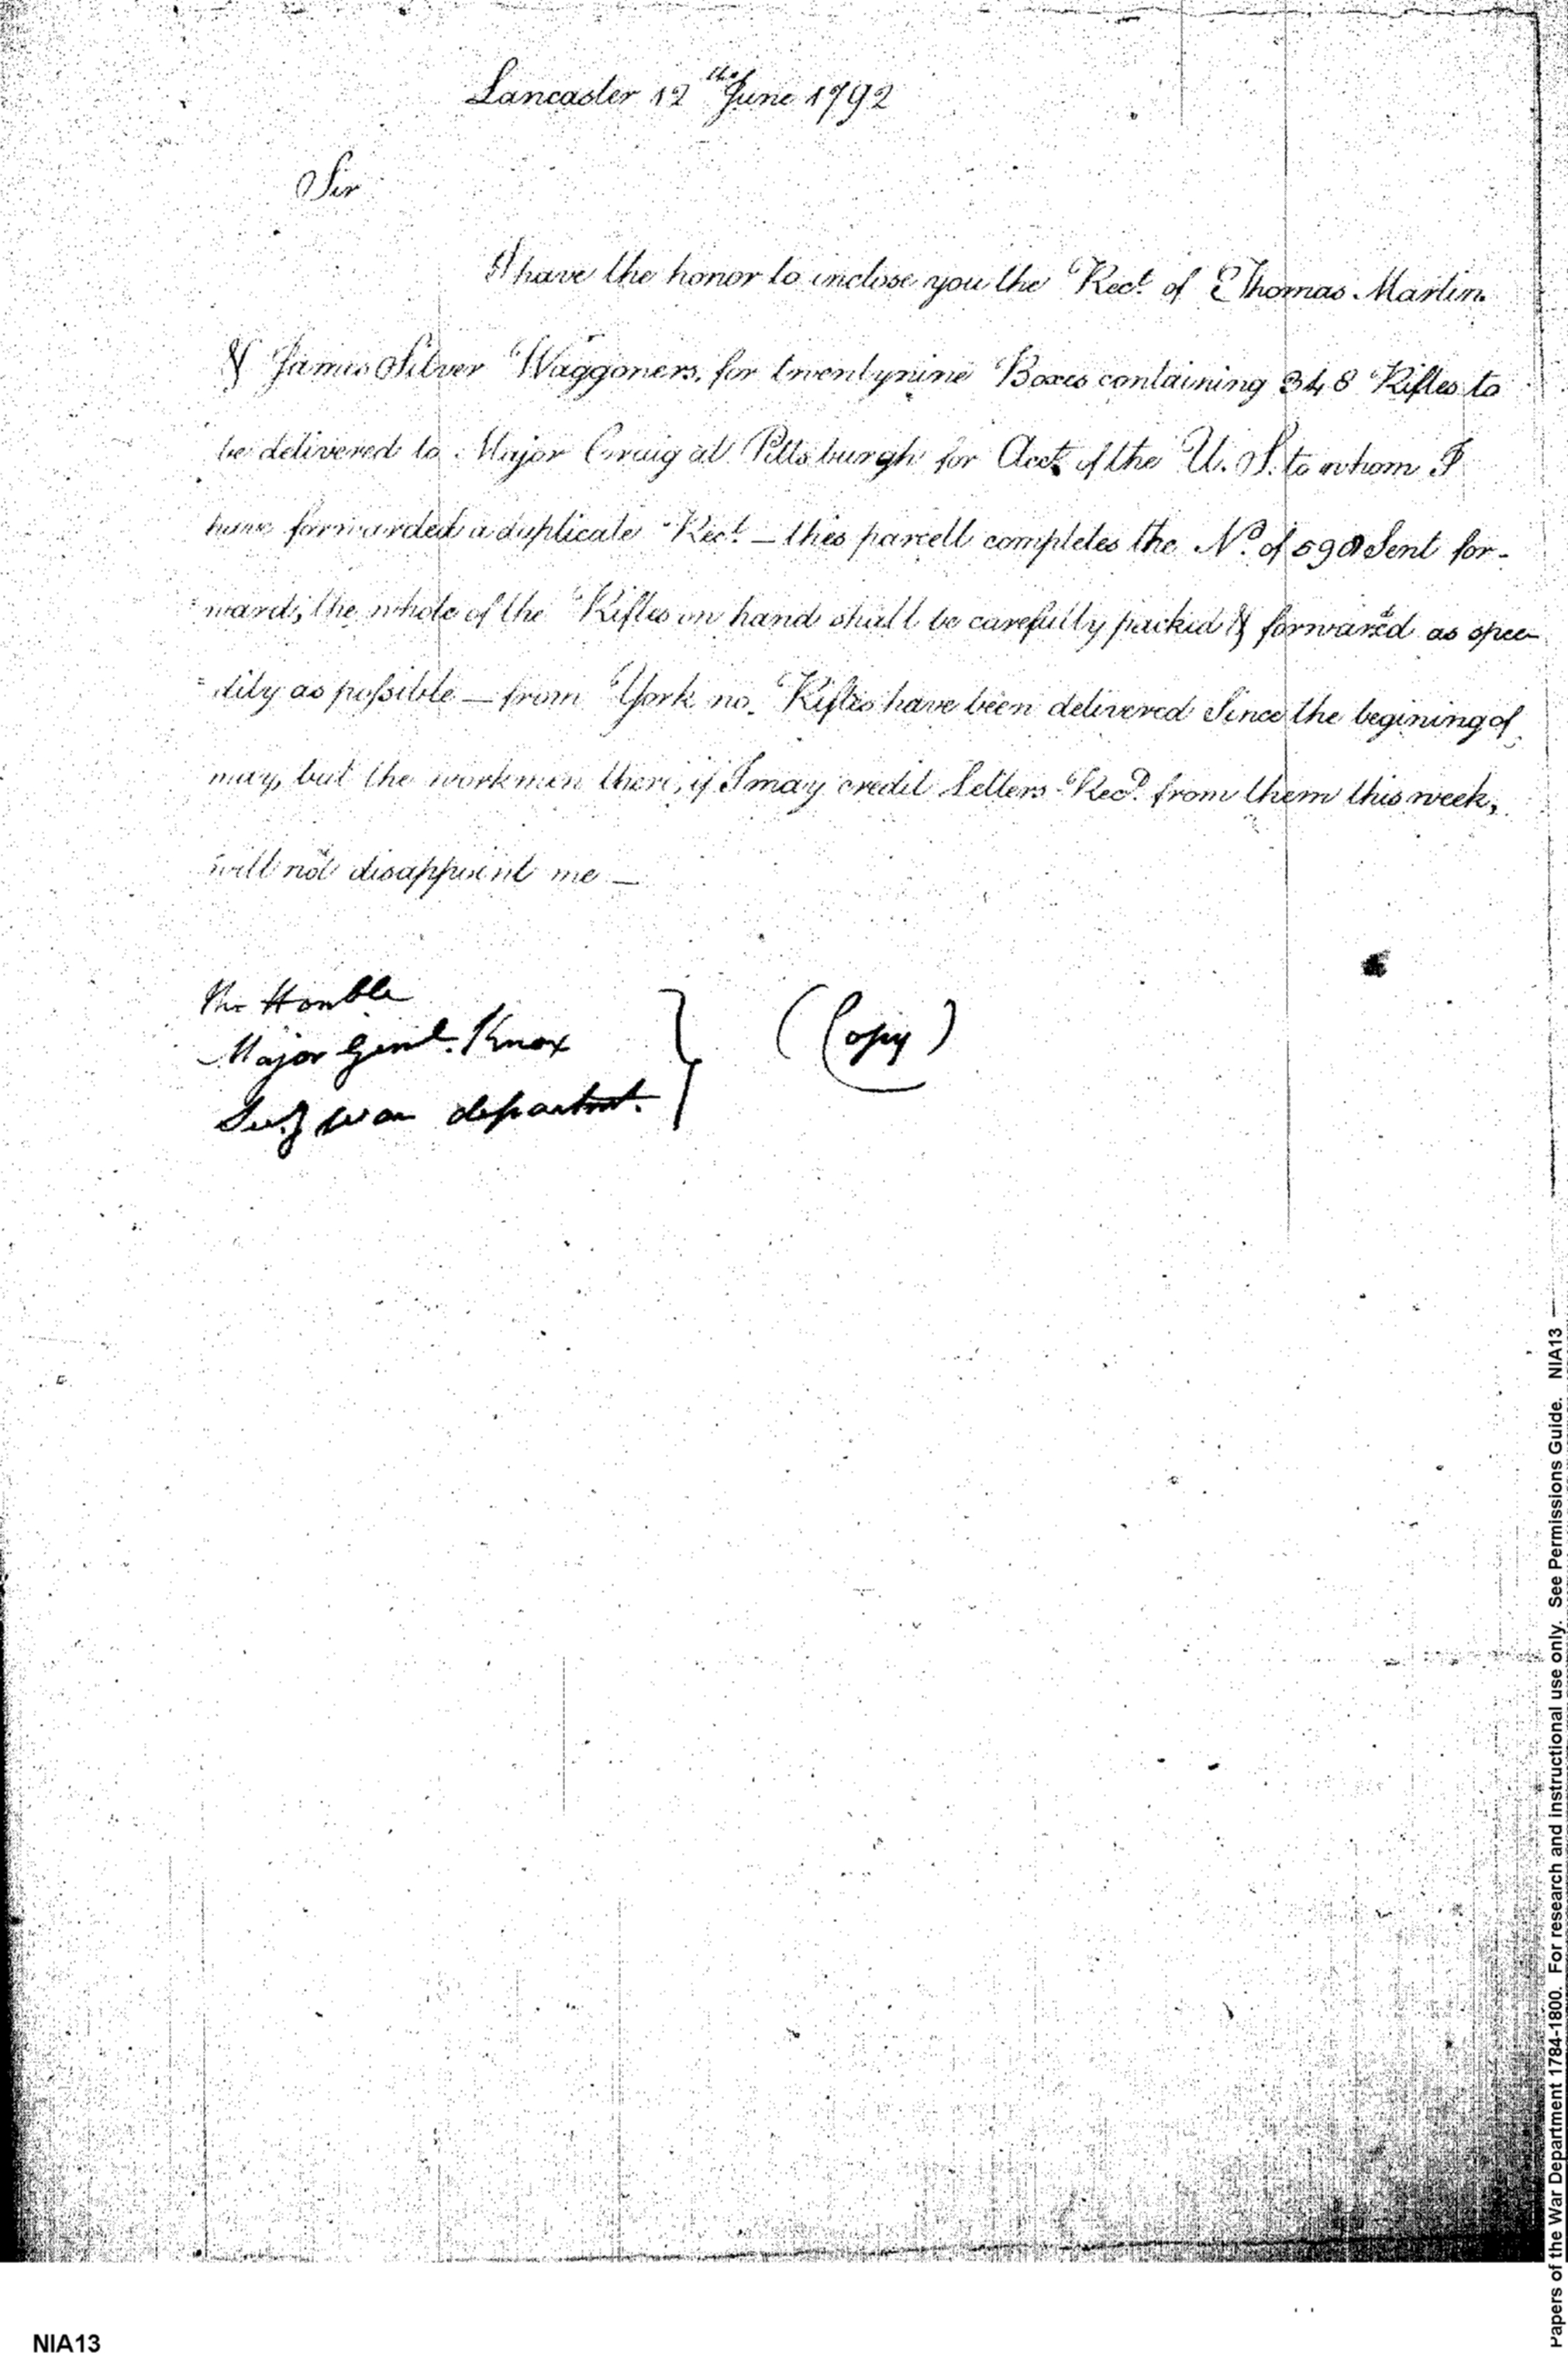 Lancaster 12th June 1792
Sir
I have the honor to inclose you the Rect. of Thomas Martin
& James Silver Waggoners, for twentynine Boxes containing 348 Rifles to
be delivered to Major Craig at Pittsburgh for Acct. of the U. S. to whom I
have forwarded a duplicate Rect. — this parcell completes the No. of Sent for-
ward; the whole of the Rifles on hand shall be carefully packed & forwared as spee
= dily as possible — from York no Rifles have been delivered Since the begining of
may, but the workmen there, if I may credit Letters Recd. from them this week,
will not disappoint me —
The Honble
Major Genl. Knox
Secy war departmt.
(Copy)
Papers of the War Department 1784-1800. For research and instructional use only. See Permissions Guide. NIA13
NIA13